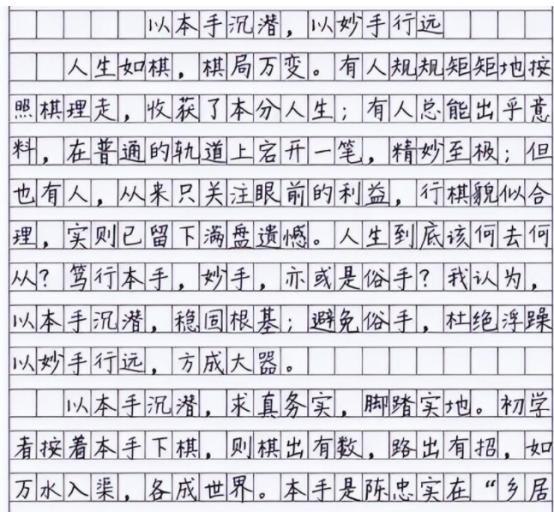 以本手沉潜，以妙手行远
人生如棋，棋局万变。有人规规矩矩地按
照棋理走，收获了本分人生；有人总能出乎意
料，在普通的轨道上宕开一笔，精妙至极；但
也有人，从来只关注眼前的利益，行棋貌似合
理，实则已留下满盘遗憾。人生到底该何去何
从？笃行本手，妙手，亦或是俗手？我认为，
以本手沉潜，稳固根基；避免俗手，杜绝浮躁
以妙手行远，方成大器。
以本手沉潜，求真务实，脚踏实地。初学
者按着本手下棋，则棋出有数，路出有招，如
万水入渠，各成世界。本手是陈忠实在“乡居